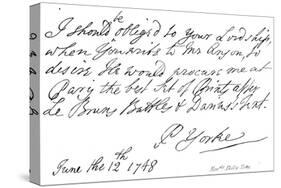 be
I should obliged to Your Lordship,
when You write to Mr Anson, to
desire He would procure me at
Paris the best Set of Prints after
Le Bruns Battles &
P Yorke
June the 12th 1748